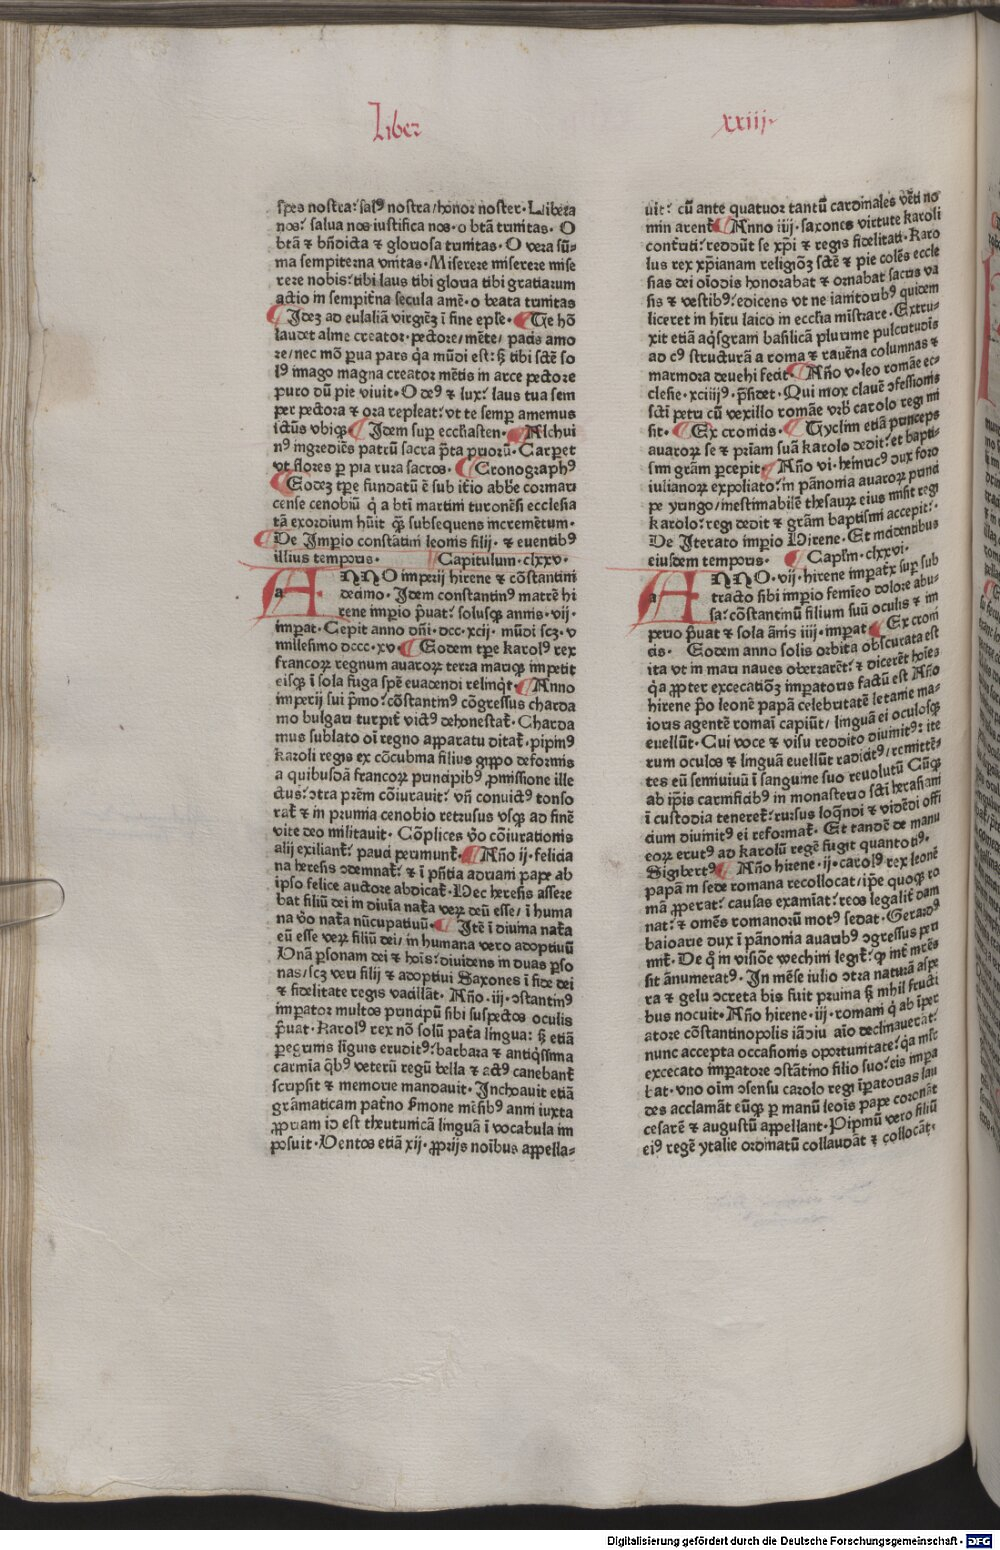 Liber
xxiij
spes nostra: salꝰ nostra/honor noster· Libera
nos: salua nos iustifica nos· o btā trinitas· O
btā ⁊ bn̄dicta ⁊ gloriosa trinitas· O vera sū-
ma sempiterna vnitas· Miserere miserere mise
rere nobis: tibi laus tibi gloria tibi gratiarum
actio in sempit̄na secula amē· o beata trinitas
¶ Idez ad eulaliā virginēz ī fine eple· ¶ Te hō
laudet alme creator· pectore/mēte/ pacis amo
re/nec mō ꝑua pars q̄a mūdi est: sꝫ tibi sctē so
lꝰ imago magna creator mētis in arce pectore
puro dū pie viuit· O deꝰ ⁊ lux: laus tua sem
per pectora ⁊ ora repleat: vt te semꝑ amemus
ictūs vbiqꝫ ¶ Idem suꝑ eccl̄iasten· ¶ Alchui
nꝰ ingrediēs patrū sacra p̄ta priorū· Carꝑet
vt flores ꝑ pia rura sacros· ¶ Cronographꝰ
¶ Eodez tꝑe fundatū ē sub it̄io abbe cormari
cense cenobiū q̄ a btī martini turonēsi ecclesia
tā exordium hūit q̄ꝫ subsequens incremētum·
¶ De Imꝑio constātini leonis filij· ⁊ euentibꝰ
illius temporis· Capitulum· clxxv·
ANNO imperij hirene ⁊ cōstantini
decimo· Idem constantinꝰ matrē hi
rene imꝑio p̄uat: solusqꝫ annis· vij·
imꝑat· Cepit anno dn̄i· dcc· xcij· mūdi scꝫ· v
millesimo dccc· xv· ¶ Eodem tꝑe karolꝰ rex
francoꝝ regnum auaroꝝ terra mariqꝫ impetit
eisqꝫ ī sola fuga spē euadendi relinq̄t· ¶ Anno
imperij sui p̄mo: cōstantinꝰ cōgressus charda
mo bulgari turpit̄ victꝰ dehonestat̄· Charda
mus sublato oī regno apparatu ditat̄· pipinꝰ
karoli regis ex cōcubina filius gippo deformis
a quibusdā francoꝝ principibꝰ ꝓmissione ille
ctus: ↄtra prēm cōiurauit: vn̄ conuictꝰ tonso
rat̄ ⁊ in prumia cenobio retrusus vsqꝫ ad finē
vite deo militauit· Cōplices v̄o cōiurationis
alij exiliant̄: pauci perimunt̄· ¶ An̄o ij· felicia
na heresis ↄdemnat̄: ⁊ ī pn̄tia adriani pape ab
ipso felice auctore abdicat̄· Hec heresis assere
bat filiū dei in diuīa nat̄a veꝝ deū esse/ ī huma
na v̄o nat̄a nūcupatiuū· ¶ Itē ī diuina nat̄a
eū esse veꝝ filiū dei/ in humana vero adoptiuū
Vnā ꝑsonam dei ⁊ hois: diuidens in duas ꝑso
nas/scꝫ veri filij ⁊ adoptiui Saxones ī fide dei
⁊ fidelitate regis vacillāt· An̄o· iij· ↄstantinꝰ
imperator multos principū sibi suspectos oculis
p̄uat· Karolꝰ rex nō solū pat̄a lingua: sꝫ etiā
ꝑegrinis līguis eruditꝰ: barbara ⁊ antiq̄ssima
carmīa q̄bꝰ veterū regū bella ⁊ actꝰ canebant̄
scripsit ⁊ memorie mandauit· Inchoauit etiā
grāmaticam pat̄no s̄mone mēsibꝰ anni iuxta
ꝓpriam id est theutunicā linguā ī vocabula im
posuit· Ventos etiā xij· ꝓprijs noībus appella-
uit: cū ante quatuor tantū cardinales vēti no
minarent̄ ¶ Anno iiij· saxones virtute karoli
cont̄riti: reddūt se xp̄i ⁊ regis fidelitati· Karo
lus rex xp̄ianam religiōꝫ sctē ⁊ pie colēs eccle
sias dei oīodis honorabat ⁊ ornabat sacris va
sis ⁊ vestibꝰ: edicens vt ne ianitoribꝰ quidem
liceret in hītu laico in eccl̄ia mīstrare· Extru-
xit etiā aq̄sgrani basilicā plurime pulcritudīs
ad cꝰ structurā a roma ⁊ rauēna columnas ⁊
marmora deuehi fecit· ¶ An̄o v· leo romāe ec-
clesie· xciiijꝰ· p̄sidet· Qui mox clauē ↄfessionis
scti petri cū vexillo romāe vrbꝰ carolo regi mi
sit· ¶ Ex cronicis· ¶ Tyclini etiā princeps
auaroꝝ se ⁊ priam suā karolo dedit: et bapti-
smi grām percepit ¶ An̄o vi· heinricꝰ dux foro
iulianoꝝ expoliato: in pānonia auaroꝝ princi
pe yringo/inestimabilē thesaurꝝ eius misit regi
karolo: regi dedit ⁊ grām baptismi accepit:·
De Iterato imperio Hirene· Et incidentibus
eiusdem temporis· ¶ Caplm̄· clxxvi·
ANNO· vij· hirene imꝑatx̄ suꝑ sub
tracto sibi imperio femieo dolore abu-
sa: cōstantinū filium suū oculis ⁊ im
perio p̄uat ⁊ sola ānis iiij· imperat ¶ Ex croni
cis· Eodem anno solis orbita obscurata est
ita vt in mari naues oberrarēt: ⁊ dicerēt hoīes
q̄a ꝓpter excecatiōꝫ imꝑatoris factū est An̄o
hirene p̄o leonē papā celebritatē letanie ma-
ioris agentē romai capiūt/ linguā ei oculosqꝫ
euellūt· Cui voce ⁊ visu reddito diuinitꝰ: ite
rum oculos ⁊ linguā euellūt radicitꝰ/ remittē-
tes eū semiuiuū ī sanguine suo reuolutū Cūqꝫ
ab ip̄is carnificibꝰ in monasterio scti herasmi
ī custodia teneret̄: rursus loq̄ndi ⁊ vidēdi offi
cium diuinitꝰ ei reformat̄· Et tandē de manu
eoꝝ erutꝰ ad karolū regē fugit quantotiꝰ·
Sigibertꝰ ¶ An̄o hirene· ij· carolꝰ rex leonē
papā in sede romana recollocat/ip̄e quoqꝫ ro
mā ꝓperat: causas examīat: reos legalit̄ dam
nat: ⁊ omēs romanorū motꝰ sedat· Gerardꝰ
baioarie dux ī pānonia auaribꝰ ↄgressus peri
mit̄· De q̄ in visiōe wechini legit̄: qꝫ int̄ mr̄es
sit ānumeratꝰ· In mēse iulio ↄtra naturā aspe
ra ⁊ gelu ↄcreta bis fuit pruina sꝫ nihil fructi
bus nocuit· An̄o hirene· iij· romani q̄ ab īper
atore cōstantinopolis iādiu aīo declinauerāt:
nunc accepta occasionis oportunitate: q̄a mīc
excecato imperatore ↄstātino filio suo: eis imꝑa
bat· vno oīm ↄsensu carolo regi īꝑatorias lau
des acclamāt eūqꝫ ꝑ manū leoīs pape coronāt
cesarē ⁊ augustū appellant· Pipinū vero filiū
eiꝰ regē ytalie ordinatū collaudāt ⁊ collocāt:·
Digitalisierung gefördert durch die Deutsche Forschungsgemeinschaft - DFG